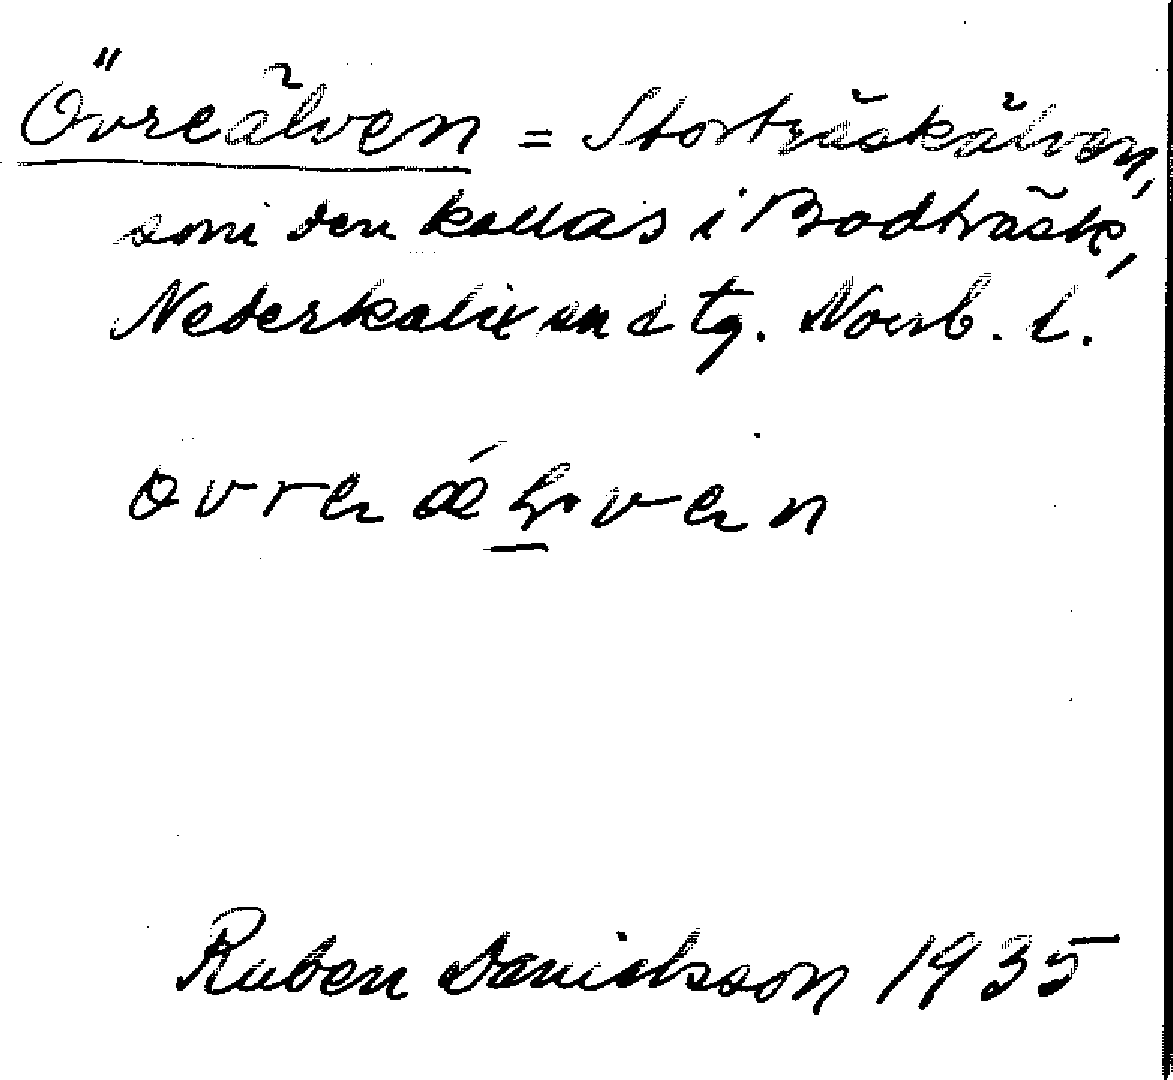 Övreälven = Storträskälven,
som den kallas i Bodträsk,
Nederkalix Norrb. l.
Ruben Danielsson 1935